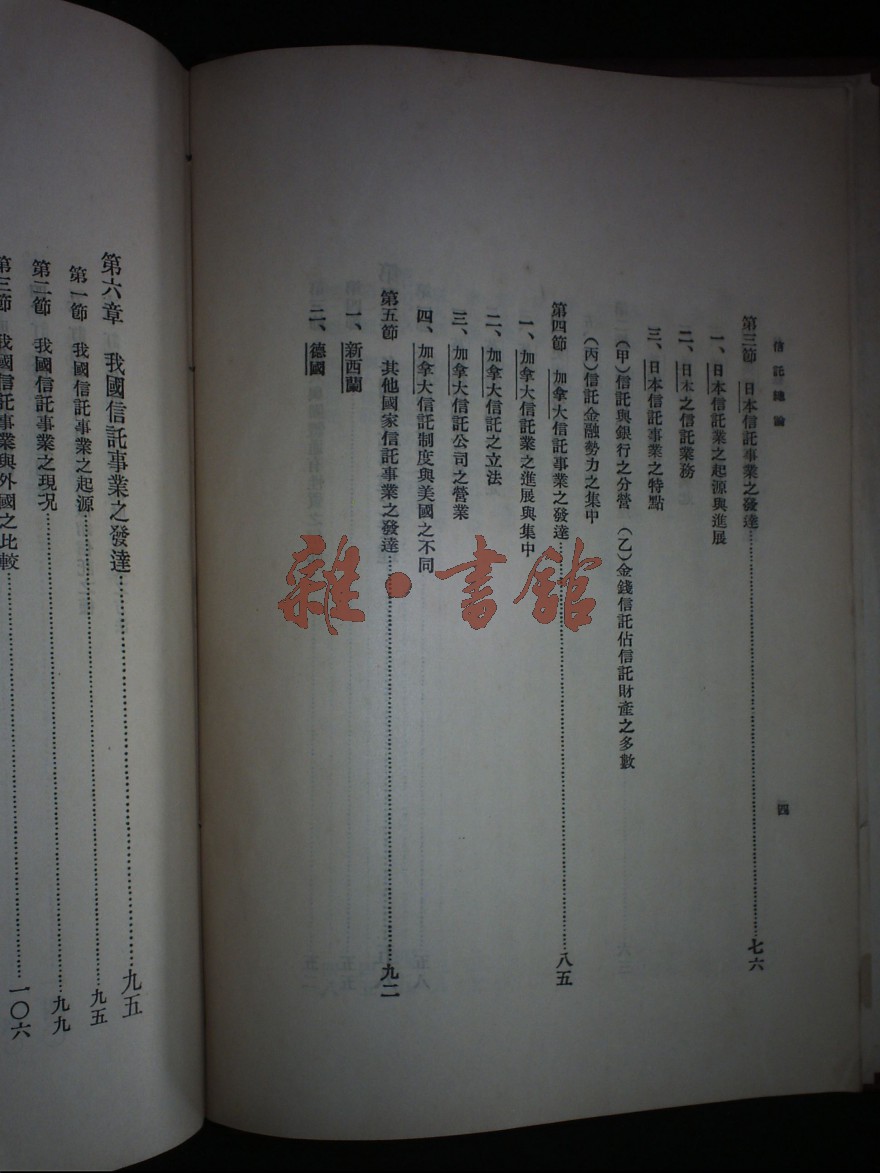 信託總論
四
第三節 日本信託事業之發達……七六
一、日本信託業之起源與進展
二、日本之信託業務
三、日本信託事業之特點
(甲)信託與銀行之分營 (乙)金錢信託佔信託財產之多數
(丙)信託金融勢力之集中
第四節 加拿大信託事業之發達……八五
一、加拿大信託業之進展與集中
二、加拿大信託之立法
三、加拿大信託公司之營業
四、加拿大信託制度與美國之不同
第五節 其他國家信託事業之發達……九二
一、新西蘭
二、德國
第六章 我國信託事業之發達……九五
第一節 我國信託事業之起源……九五
第二節 我國信託事業之現況……九九
第三節 我國信託事業與外國之比較……一〇六
雜·書館